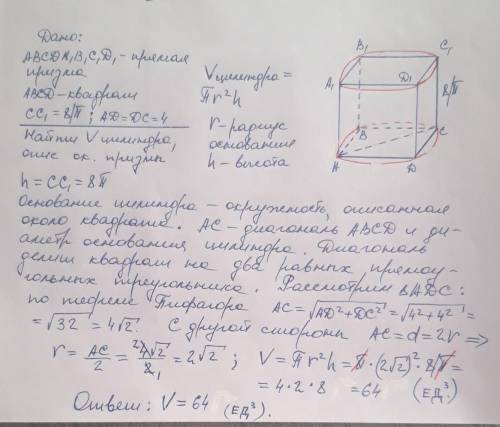 Дано:
ABCDA₁B₁C₁D₁ - прямая
призма
ABCD - квадрат
CC₁ = 8/π ; AD=DC=4
Найти V цилиндра,
опис. ок. призмы
h = CC₁ = 8/π
V цилиндра =
πr²h
r - радиус
основания
h - высота
B₁ C₁
A₁ D₁
8/π
B C
A D
Основание цилиндра - окружность, описанная
около квадрата. AC - диагональ ABCD и ди-
аметр основания цилиндра. Диагональ
делит квадрат на два равных прямоу-
гольных треугольника. Рассмотрим △ADC:
по теореме Пифагора AC = √AD²+DC² = √4²+4² =
= √32 = 4√2. С другой стороны AC = d = 2r ⇒
r = AC/2 = 4√2/2 = 2√2 ; V = πr²h = π·(2√2)²·8/π =
= 4·2·8 = 64 (ЕД³)
Ответ: V = 64 (ЕД³).